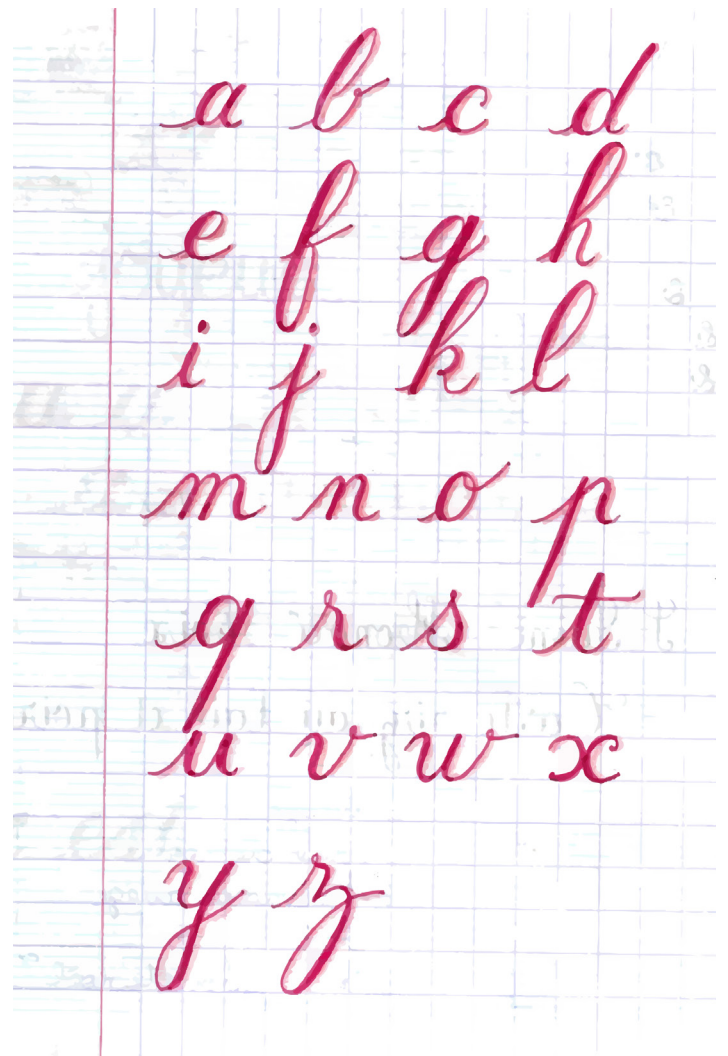 a b c d
e f g h
i j k l
m n o p
q r s t
u v w x
y z